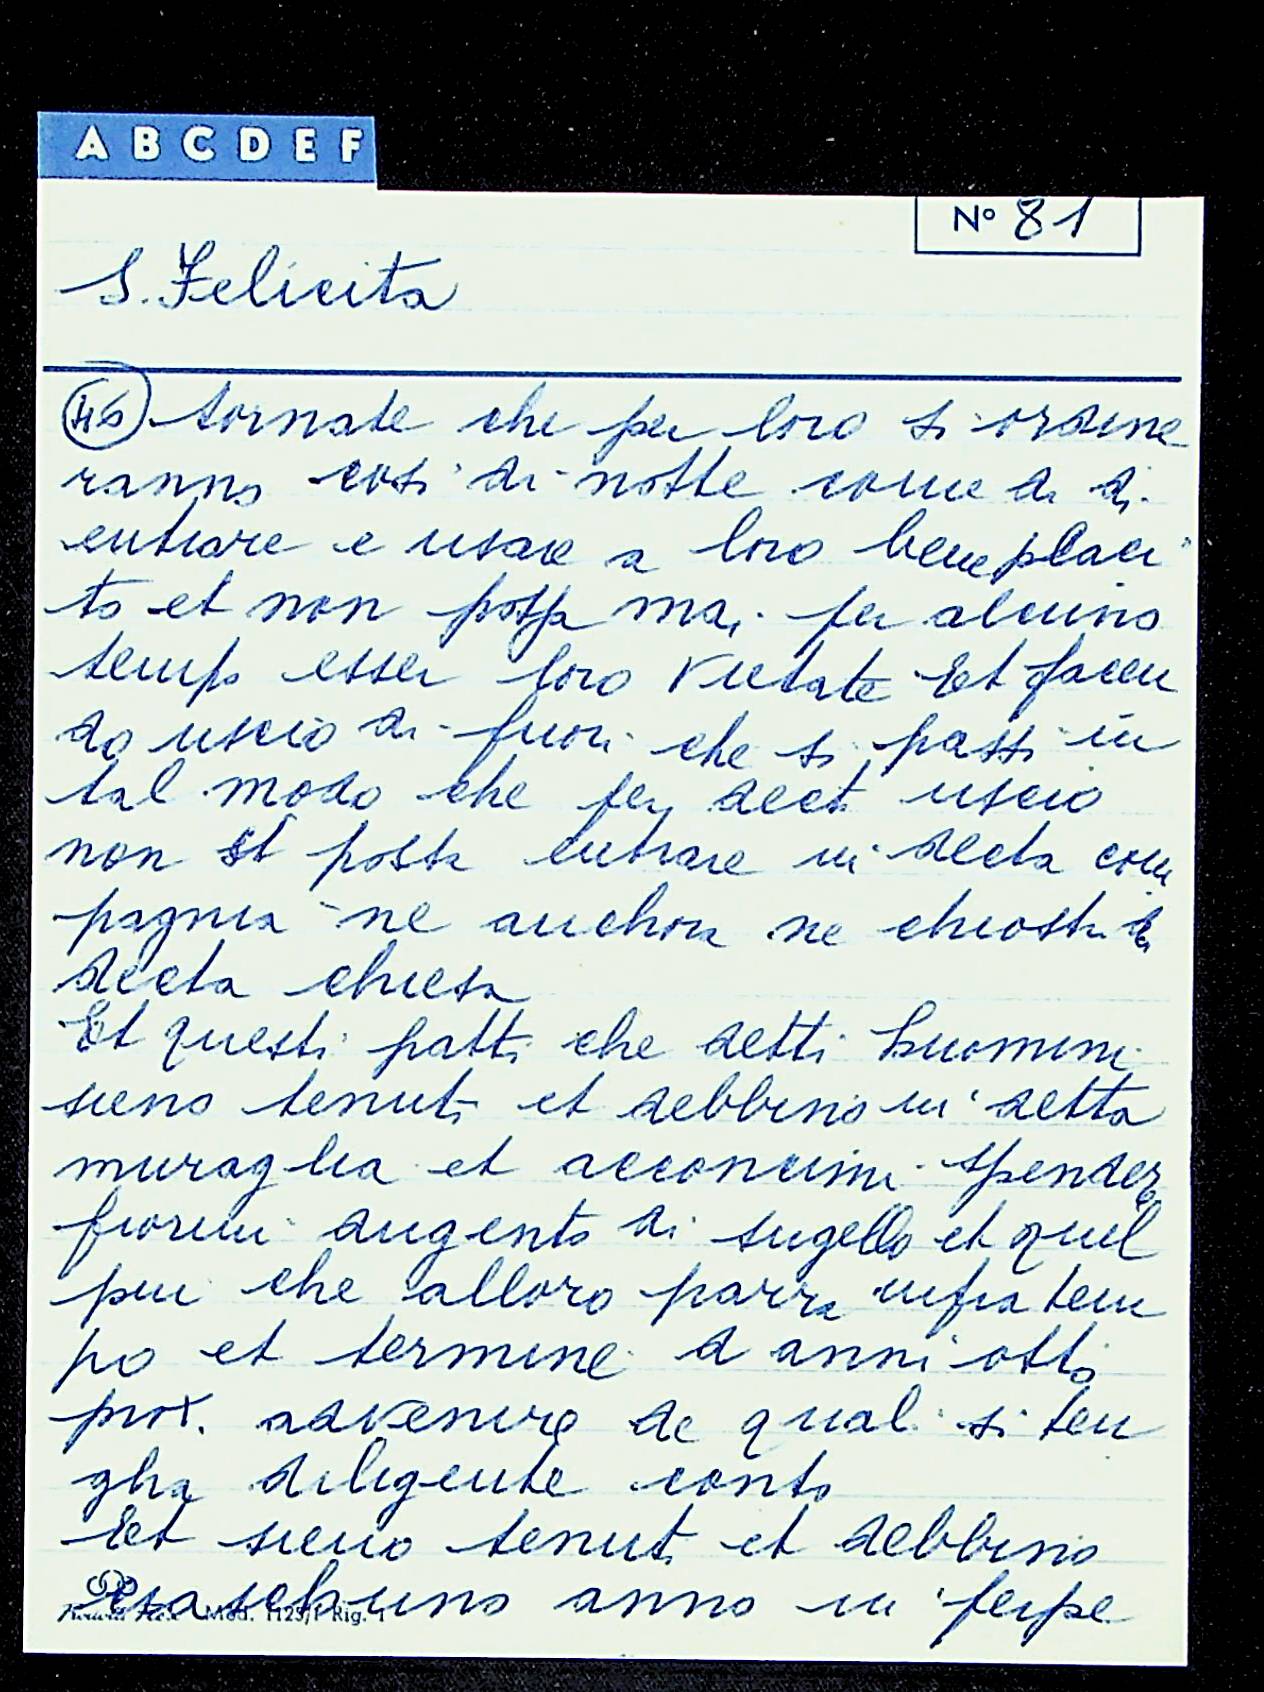 A B C D E F
Nº 81
S. Felicita
46 tornate che per loro si ordine
ranno cosi di notte come di di
entrare e usare a loro beneplaci
to et non possa mai per alcuno
tempo esser loro vietate Et facen
do uscio di fuori che si passi in
tal modo che per dect. uscio
non si possa entrare in decta com
pagnia ne anchora ne chiostri di
decta chiesa
Et questi patti che detti huomini
sieno tenuti et debbino in detta
muraglia et acconcimi spendere
fiorini dugento di sugello et quel
piu che alloro parra infra tem
po et termine d anni otto
prox. advenire de quali si ten
gha diligente conto
Et sieno tenuti et debbino
ciaschuno anno in perpe
Mod. Rig.